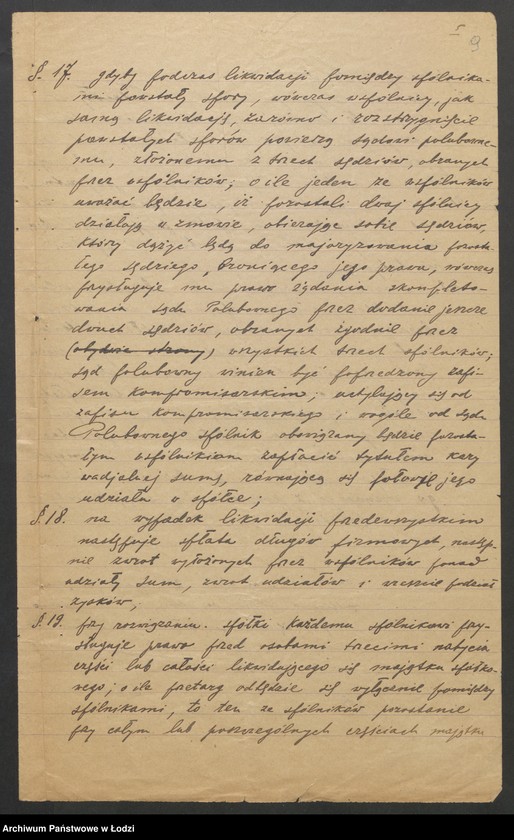 9
§. 17. gdyby podczas likwidacji pomiędzy spólnika-
mi powstały spory, wówczas wspólnicy, jak
samą likwidację, zarówno i rozstrzygnięcie
powstałych sporów powierzą sądowi polubowne-
mu, złożonemu z trzech sędziów, obranych
przez wspólników; o ile jeden ze wspólników
uważać będzie, iż pozostali dwaj spólnicy
działają w zmowie, obierając sobie sędziów,
którzy dążyć będą do majoryzowania pozosta-
łego sędziego, broniącego jego prawa, wówczas
przysługuje mu prawo żądania skompleto-
wania sądu Polubownego przez dodanie jeszcze
dwuch sędziów, obranych zgodnie przez
(obydwie strony) wszystkich trzech spólników;
sąd polubowny winien być poprzedzony zapi-
sem kompromisarskim; uchylający się od
zapisu kompromisarskiego i wogóle od sądu
Polubownego spólnik obowiązany będzie pozosta-
łym wspólnikom zapłacić tytułem kary
wadjalnej sumę, równającą się połowie jego
udziału w spółce;
§. 18. na wypadek likwidacji przedewszystkiem
następuje spłata długów firmowych, następ-
nie zwrot wyłożonych przez wspólników ponad
udziały sum, zwrot udziałów i wreszcie podział
zysków,
§. 19. przy rozwiązaniu spółki każdemu spólnikowi przy-
sługuje prawo przed osobami trzeciemi nabycia
części lub całości likwidującego się majątku spółko-
wego; o ile przetarg odbędzie się wyłącznie pomiędzy
spólnikami, to ten ze spólników pozostanie
przy całym lub poszczególnych częściach majątku
Archiwum Państwowe w Łodzi